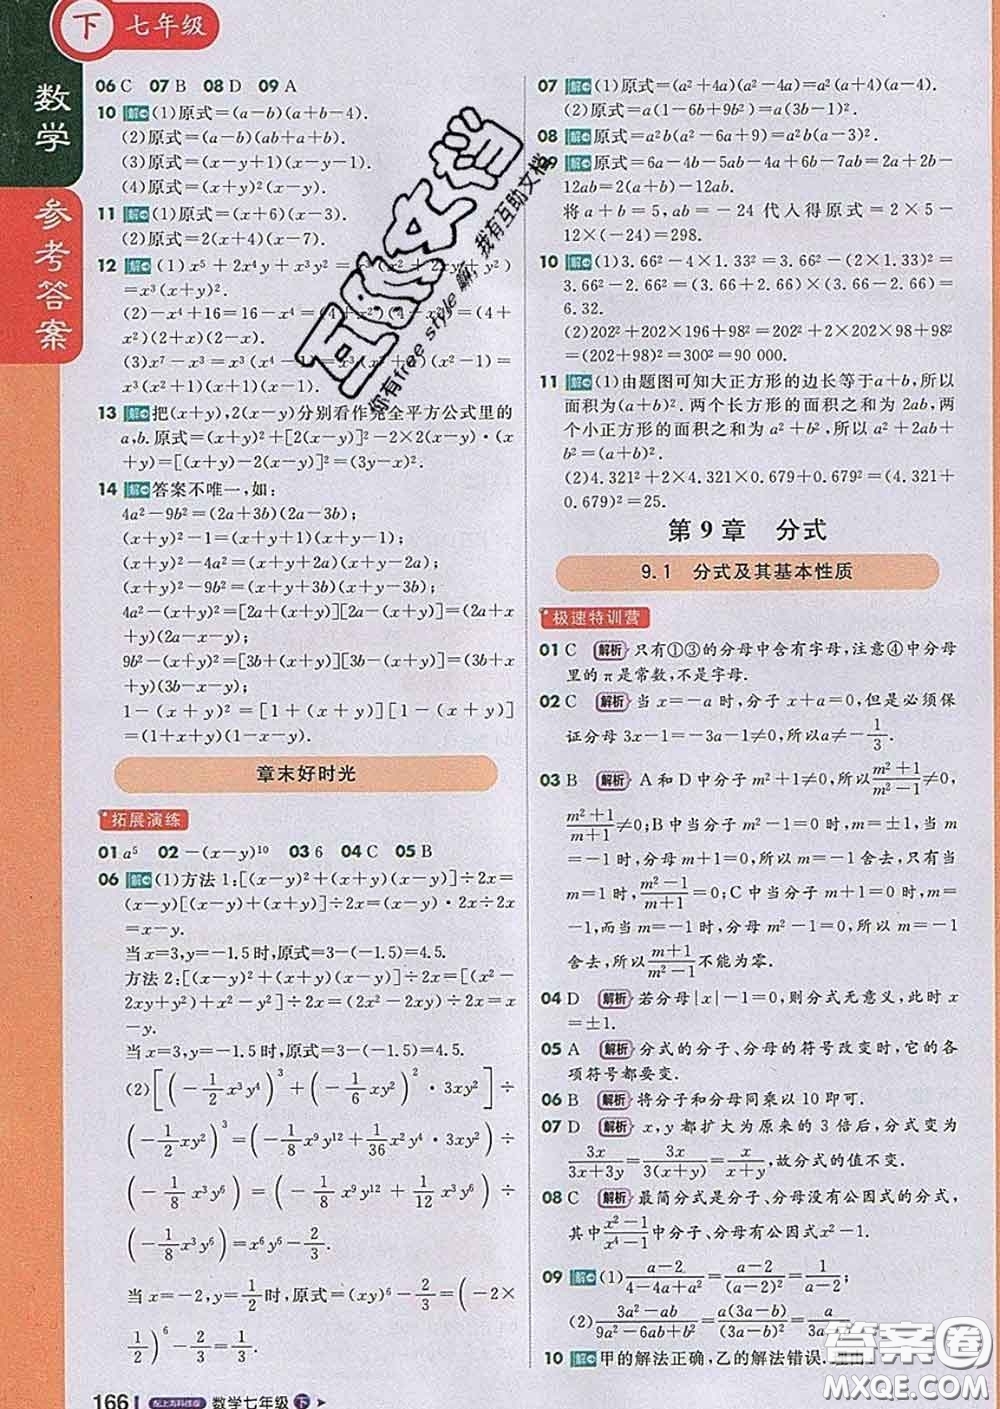 下 七年级
数学
参考答案
06 C 07 B 08 D 09 A
10 解 (1)原式=(a-b)(a+b-4).
(2)原式=(a-b)(ab+a+b).
(3)原式=(x-y+1)(x-y-1).
(4)原式=(x+y)²(x-y)².
11 解 (1)原式=(x+6)(x-3).
(2)原式=2(x+4)(x-7).
12 解 (1)x⁵+2x⁴y+x³y²=x³(x²+2xy+y²)
=x³(x+y)².
(2)-x⁴+16=16-x⁴=(4+x²)(4-x²)=(4+
x²)(2+x)(2-x).
(3)x⁷-x³=x³(x⁴-1)=x³(x²+1)(x²-1)=
x³(x²+1)(x+1)(x-1).
13 解 把(x+y),2(x-y)分别看作完全平方公式里的
a,b.原式=(x+y)²+[2(x-y)]²-2×2(x-y)·(x+
y)=[(x+y)-2(x-y)]²=(3y-x)².
14 解 答案不唯一,如:
4a²-9b²=(2a+3b)(2a-3b);
(x+y)²-1=(x+y+1)(x+y-1);
(x+y)²-4a²=(x+y+2a)(x+y-2a);
(x+y)²-9b²=(x+y+3b)(x+y-3b);
4a²-(x+y)²=[2a+(x+y)][2a-(x+y)]=(2a+x+
y)(2a-x-y);
9b²-(x+y)²=[3b+(x+y)][3b-(x+y)]=(3b+x+
y)(3b-x-y);
1-(x+y)²=[1+(x+y)][1-(x+y)]
=(1+x+y)(1-x-y).
章末好时光
拓展演练
01 a⁵ 02 -(x-y)¹⁰ 03 6 04 C 05 B
06 解 (1)方法1:[(x-y)²+(x+y)(x-y)]÷2x=
(x-y)[(x-y)+(x+y)]÷2x=(x-y)·2x÷2x
=x-y.
当x=3,y=-1.5时,原式=3-(-1.5)=4.5.
方法2:[(x-y)²+(x+y)(x-y)]÷2x=[(x²-
2xy+y²)+x²-y²]÷2x=(2x²-2xy)÷2x=x-
y.
当x=3,y=-1.5时,原式=3-(-1.5)=4.5.
(2)[(-1/2x³y⁴)³+(-1/6xy²)²·3xy²]÷
(-1/2xy²)³=(-1/8x⁹y¹²+1/36x²y⁴·3xy²)÷
(-1/8x³y⁶)=(-1/8x⁹y¹²+1/12x³y⁶)÷
(-1/8x³y⁶)=x⁶y⁶-2/3.
当x=-2,y=1/2时,原式=(xy)⁶-2/3=(-2×
1/2)⁶-2/3=1/3.
166 配上海科技版 数学七年级 下
07 解 (1)原式=(a²+4a)(a²-4a)=a²(a+4)(a-4).
(2)原式=a(1-6b+9b²)=a(3b-1)².
08 解 原式=a²b(a²-6a+9)=a²b(a-3)².
09 解 原式=6a-4a-5ab-4a+6b-7ab=2a+2b-
12ab=2(a+b)-12ab.
将a+b=5,ab=-24代入得原式=2×5-
12×(-24)=298.
10 解 (1)3.66²-4×1.33²=3.66²-(2×1.33)²=
3.66²-2.66²=(3.66+2.66)×(3.66-2.66)=
6.32.
(2)202²+202×196+98²=202²+2×202×98+98²
=(202+98)²=300²=90 000.
11 解 (1)由题图可知大正方形的边长等于a+b,所以
面积为(a+b)².两个长方形的面积之和为2ab,两
个小正方形的面积之和为a²+b²,所以a²+2ab+
b²=(a+b)².
(2)4.321²+2×4.321×0.679+0.679²=(4.321+
0.679)²=25.
第9章 分式
9.1 分式及其基本性质
极速特训营
01 C 解析 只有①③的分母中含有字母,注意④中分母
里的π是常数,不是字母.
02 C 解析 当x=-a时,分子x+a=0,但是必须保
证分母3x-1=-3a-1≠0,所以a≠-1/3.
03 B 解析 A和D中分子m²+1≠0,所以(m²+1)/(m²-1)≠0,
(m²+1)/(m+1)≠0;B中当分子m²-1=0时,m=±1,当m
=-1时,分母m+1=0,m=-1舍去,只有当
m=1时,(m²-1)/(m+1)=0;C中当分子m+1=0时,m=
-1,而当m=-1时,分母m²-1=0,所以m=-1
舍去,所以(m+1)/(m²-1)不能为零.
04 D 解析 若分母|x|-1=0,则分式无意义,此时x
=±1.
05 A 解析 分式的分子、分母的符号改变时,它的各
项符号都要变.
06 B 解析 将分子和分母同乘以10即可.
07 D 解析 x,y都扩大为原来的3倍后,分式变为
3x/(3x+3y)=3x/(3(x+y))=x/(x+y),故分式的值不变.
08 C 解析 最简分式是分子、分母没有公因式的分式,
其中(x²-1)/(x⁴-1)中分子、分母有公因式x²-1.
09 解 (1)(a-2)/(4-4a+a²)=(a-2)/(a-2)²=1/(a-2);
(2)(3a²-ab)/(9a²-6ab+b²)=a(3a-b)/(3a-b)²=a/(3a-b).
10 解 甲的解法正确,乙的解法错误.
互助文档
你有free style 嘛,我有互助文档
答案圈
MXQE.COM